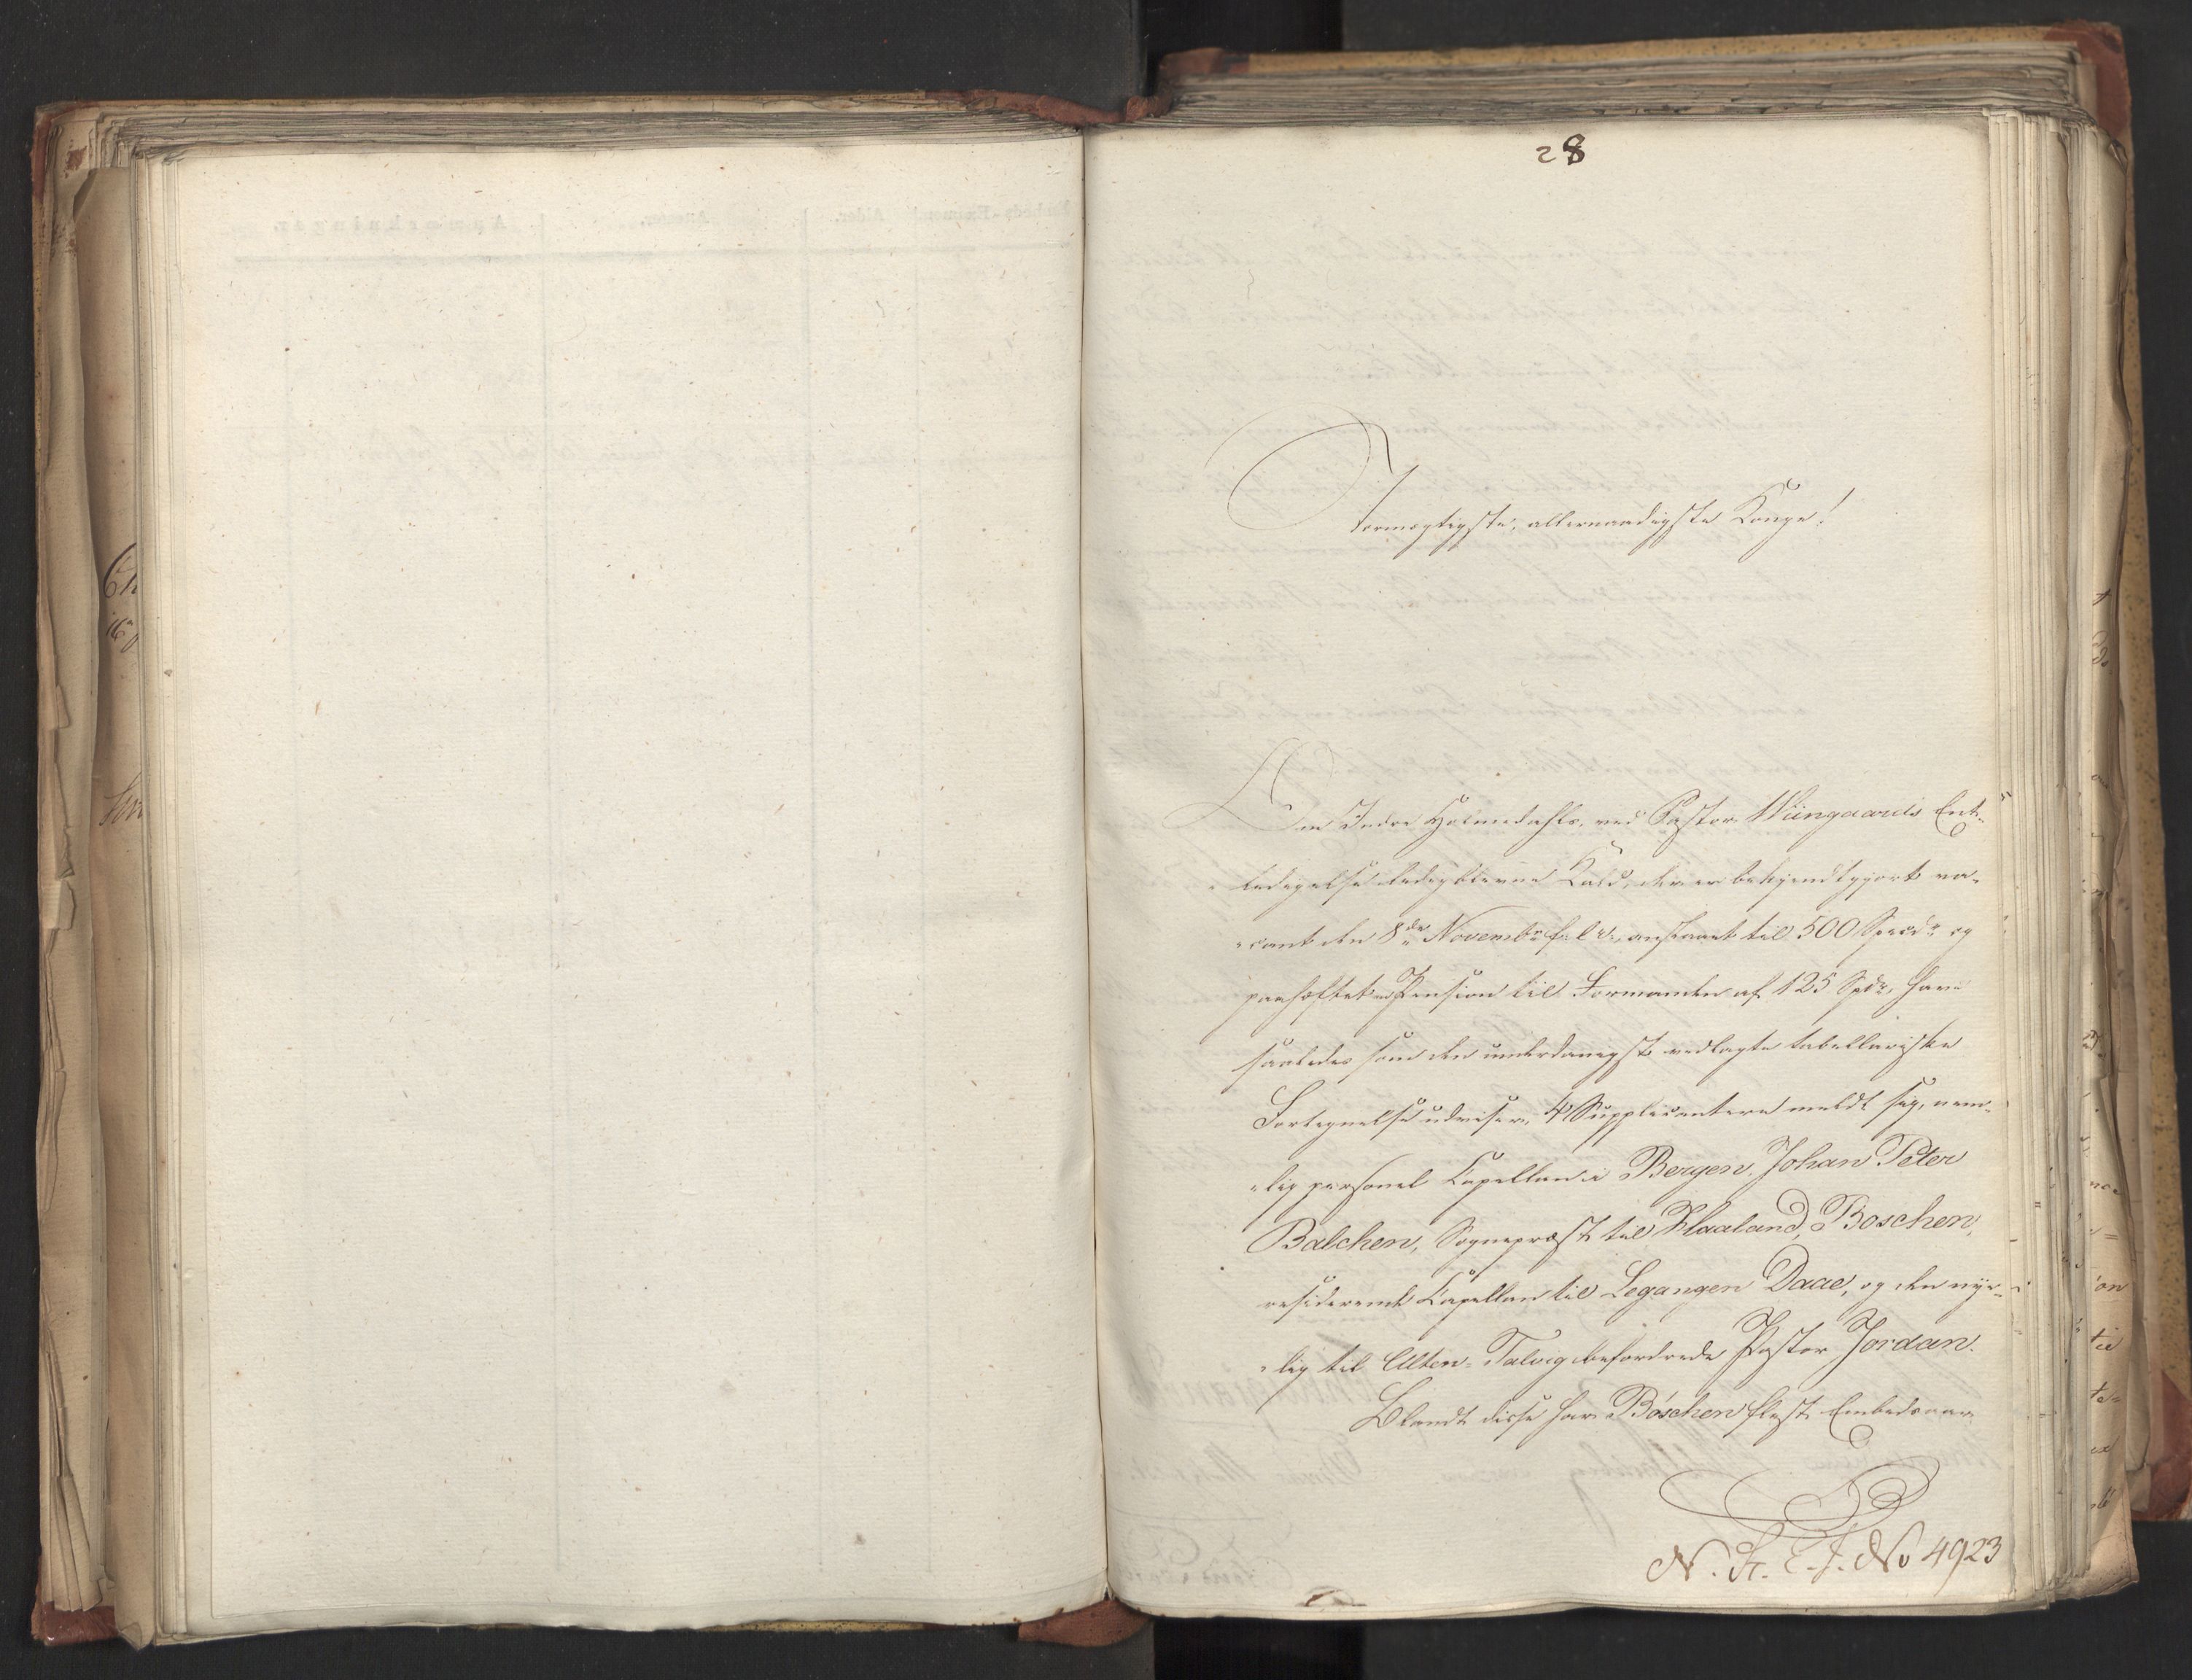 28
Stormægtigste, allernaadigste Konge!
Om Indre Holmedahls, ved Pastor Wiingaards Ent-
ledigelse ledigblevne Kald, der er bekjendtgjort va-
cant den 8de Novembr f. A., anslaaet til 500 Specdr og
paahæftet en Pension til Formanden af 125 Spdr, have
saaledes som den underdanigst vedlagte tabellariske
Fortegnelse udviser, 4 Supplicantere meldt sig, nem-
lig personel Capellan i Bergen, Johan Peter
Balchen, Sognepræst til Haaland, Boschen,
residerende Capellan til Legangen Daae, og den nye-
lig til Alten-Talvig befordrede Pastor Jordan.
Blandt disse har Böschen flest Embedsaar
No 4923